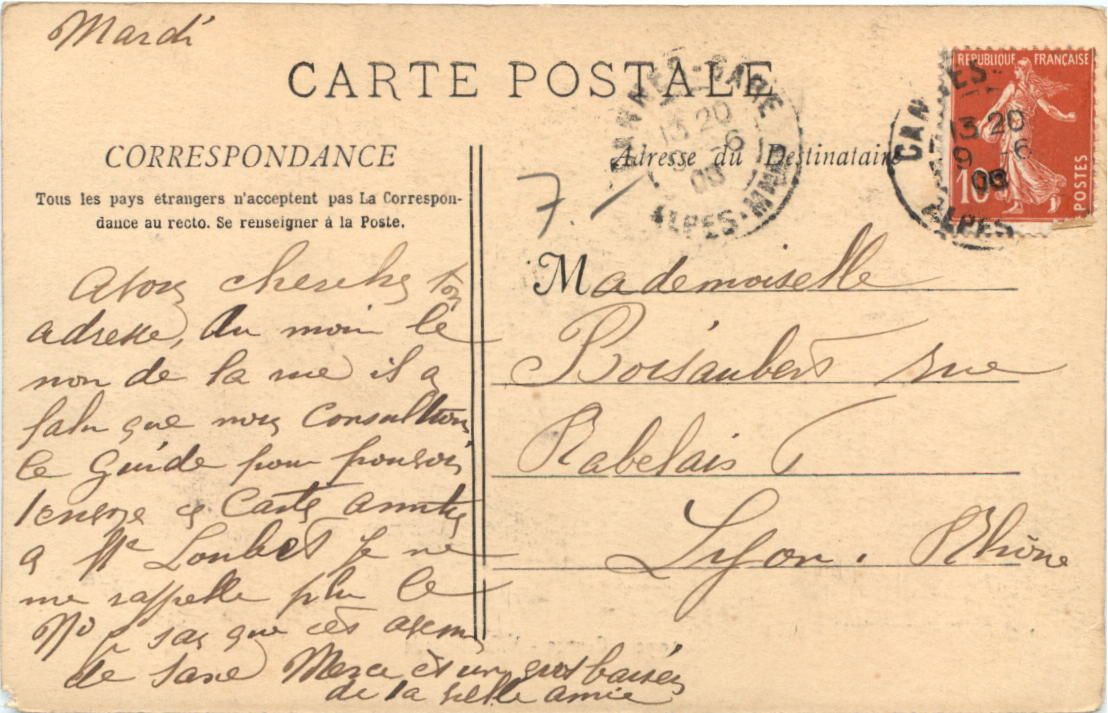 Mardi
CARTE POSTALE
CORRESPONDANCE
Tous les pays étrangers n'acceptent pas La Correspon-
dance au recto. Se renseigner à la Poste.
Avons cherché ton
adresse, du moin le
non de la rue il a
falu que nous Consultions
le Guide pour pouvoir
ce Carte
a Me Loubet Je ne
me rappelle plu le
No sas que cès
de Saxe Merci èt un gros baiser
de la vielle amie
CANNES-GARE
13 20
9 -6
08
ALPES-MMES
Adresse du Destinataire
7. -
Mademoiselle
Boisaubert rue
Rabelais 7
Lyon. Rhône
REPUBLIQUE FRANÇAISE
10
POSTES
CANNES
13 20
9 -6
08
ALPES